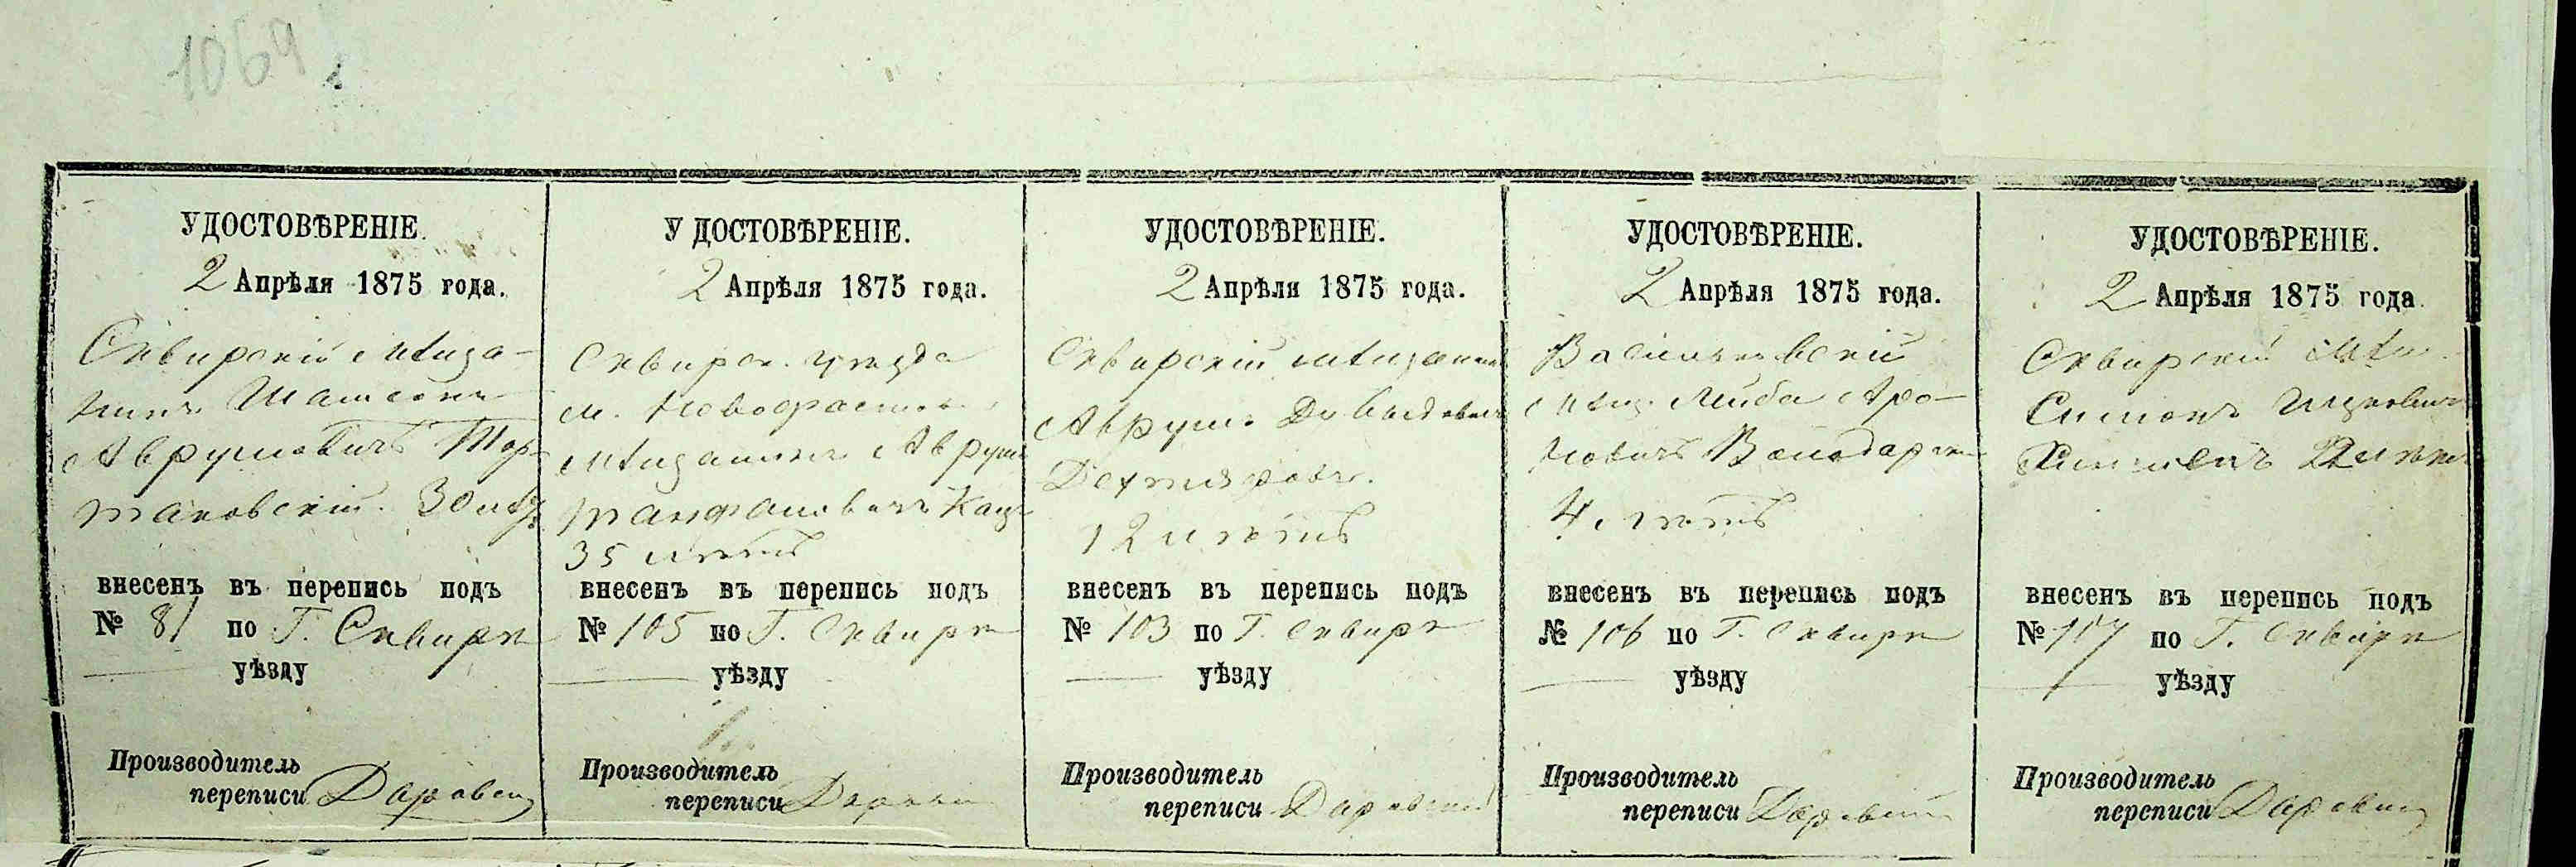 1069
УДОСТОВѢРЕНІЕ.
2 Апрѣля 1875 года.
Сквирскій мѣща-
нинъ Шамсонъ
Аврумовичъ Тор-
таковскій. 30 лѣт
внесенъ въ перепись подъ
№ 81 по Г. Сквирѣ
уѣзду
Производитель
переписи Даровскій
У ДОСТОВѢРЕНІЕ.
2 Апрѣля 1875 года.
Сквирск. уѣзда
м. Новофастов
мѣщанинъ Аврум
Кац
35 лѣтъ
внесенъ въ перепись подъ
№ 105 по Г. Сквирѣ
уѣзду
Производитель
переписи
УДОСТОВѢРЕНІЕ.
2 Апрѣля 1875 года.
Сквирскій мѣщанин
Аврумъ Дувыдович
Дехтяровъ.
12 лѣтъ
внесенъ въ перепись подъ
№ 103 по Г. Сквирѣ
уѣзду
Производитель
переписи Даровскій
УДОСТОВѢРЕНІЕ.
2 Апрѣля 1875 года.
Васильковскій
мѣщ. Лейба Аро-
новичъ Володарск
4 лѣтъ
внесенъ въ перепись подъ
№ 106 по Г. Сквирѣ
уѣзду
Производитель
переписи Даровскій
УДОСТОВѢРЕНІЕ.
2 Апрѣля 1875 года.
Сквирскій мѣщ.
Симонъ Ицковичъ
внесенъ въ перепись подъ
№ 107 по Г. Сквирѣ
уѣзду
Производитель
переписи Даровскій